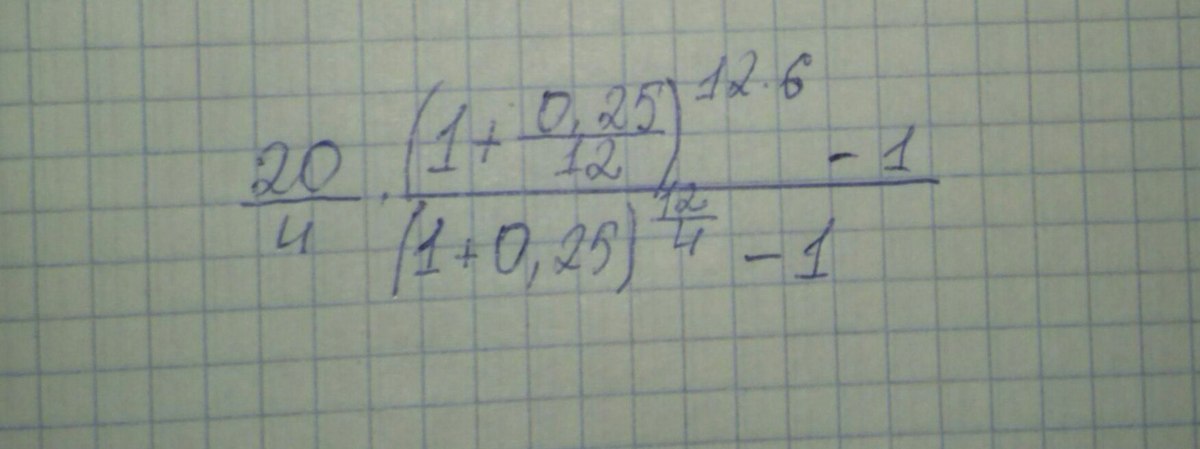 20/4 · ((1 + 0,25/12)^(12·6) - 1)/((1 + 0,25)^(12/4) - 1)